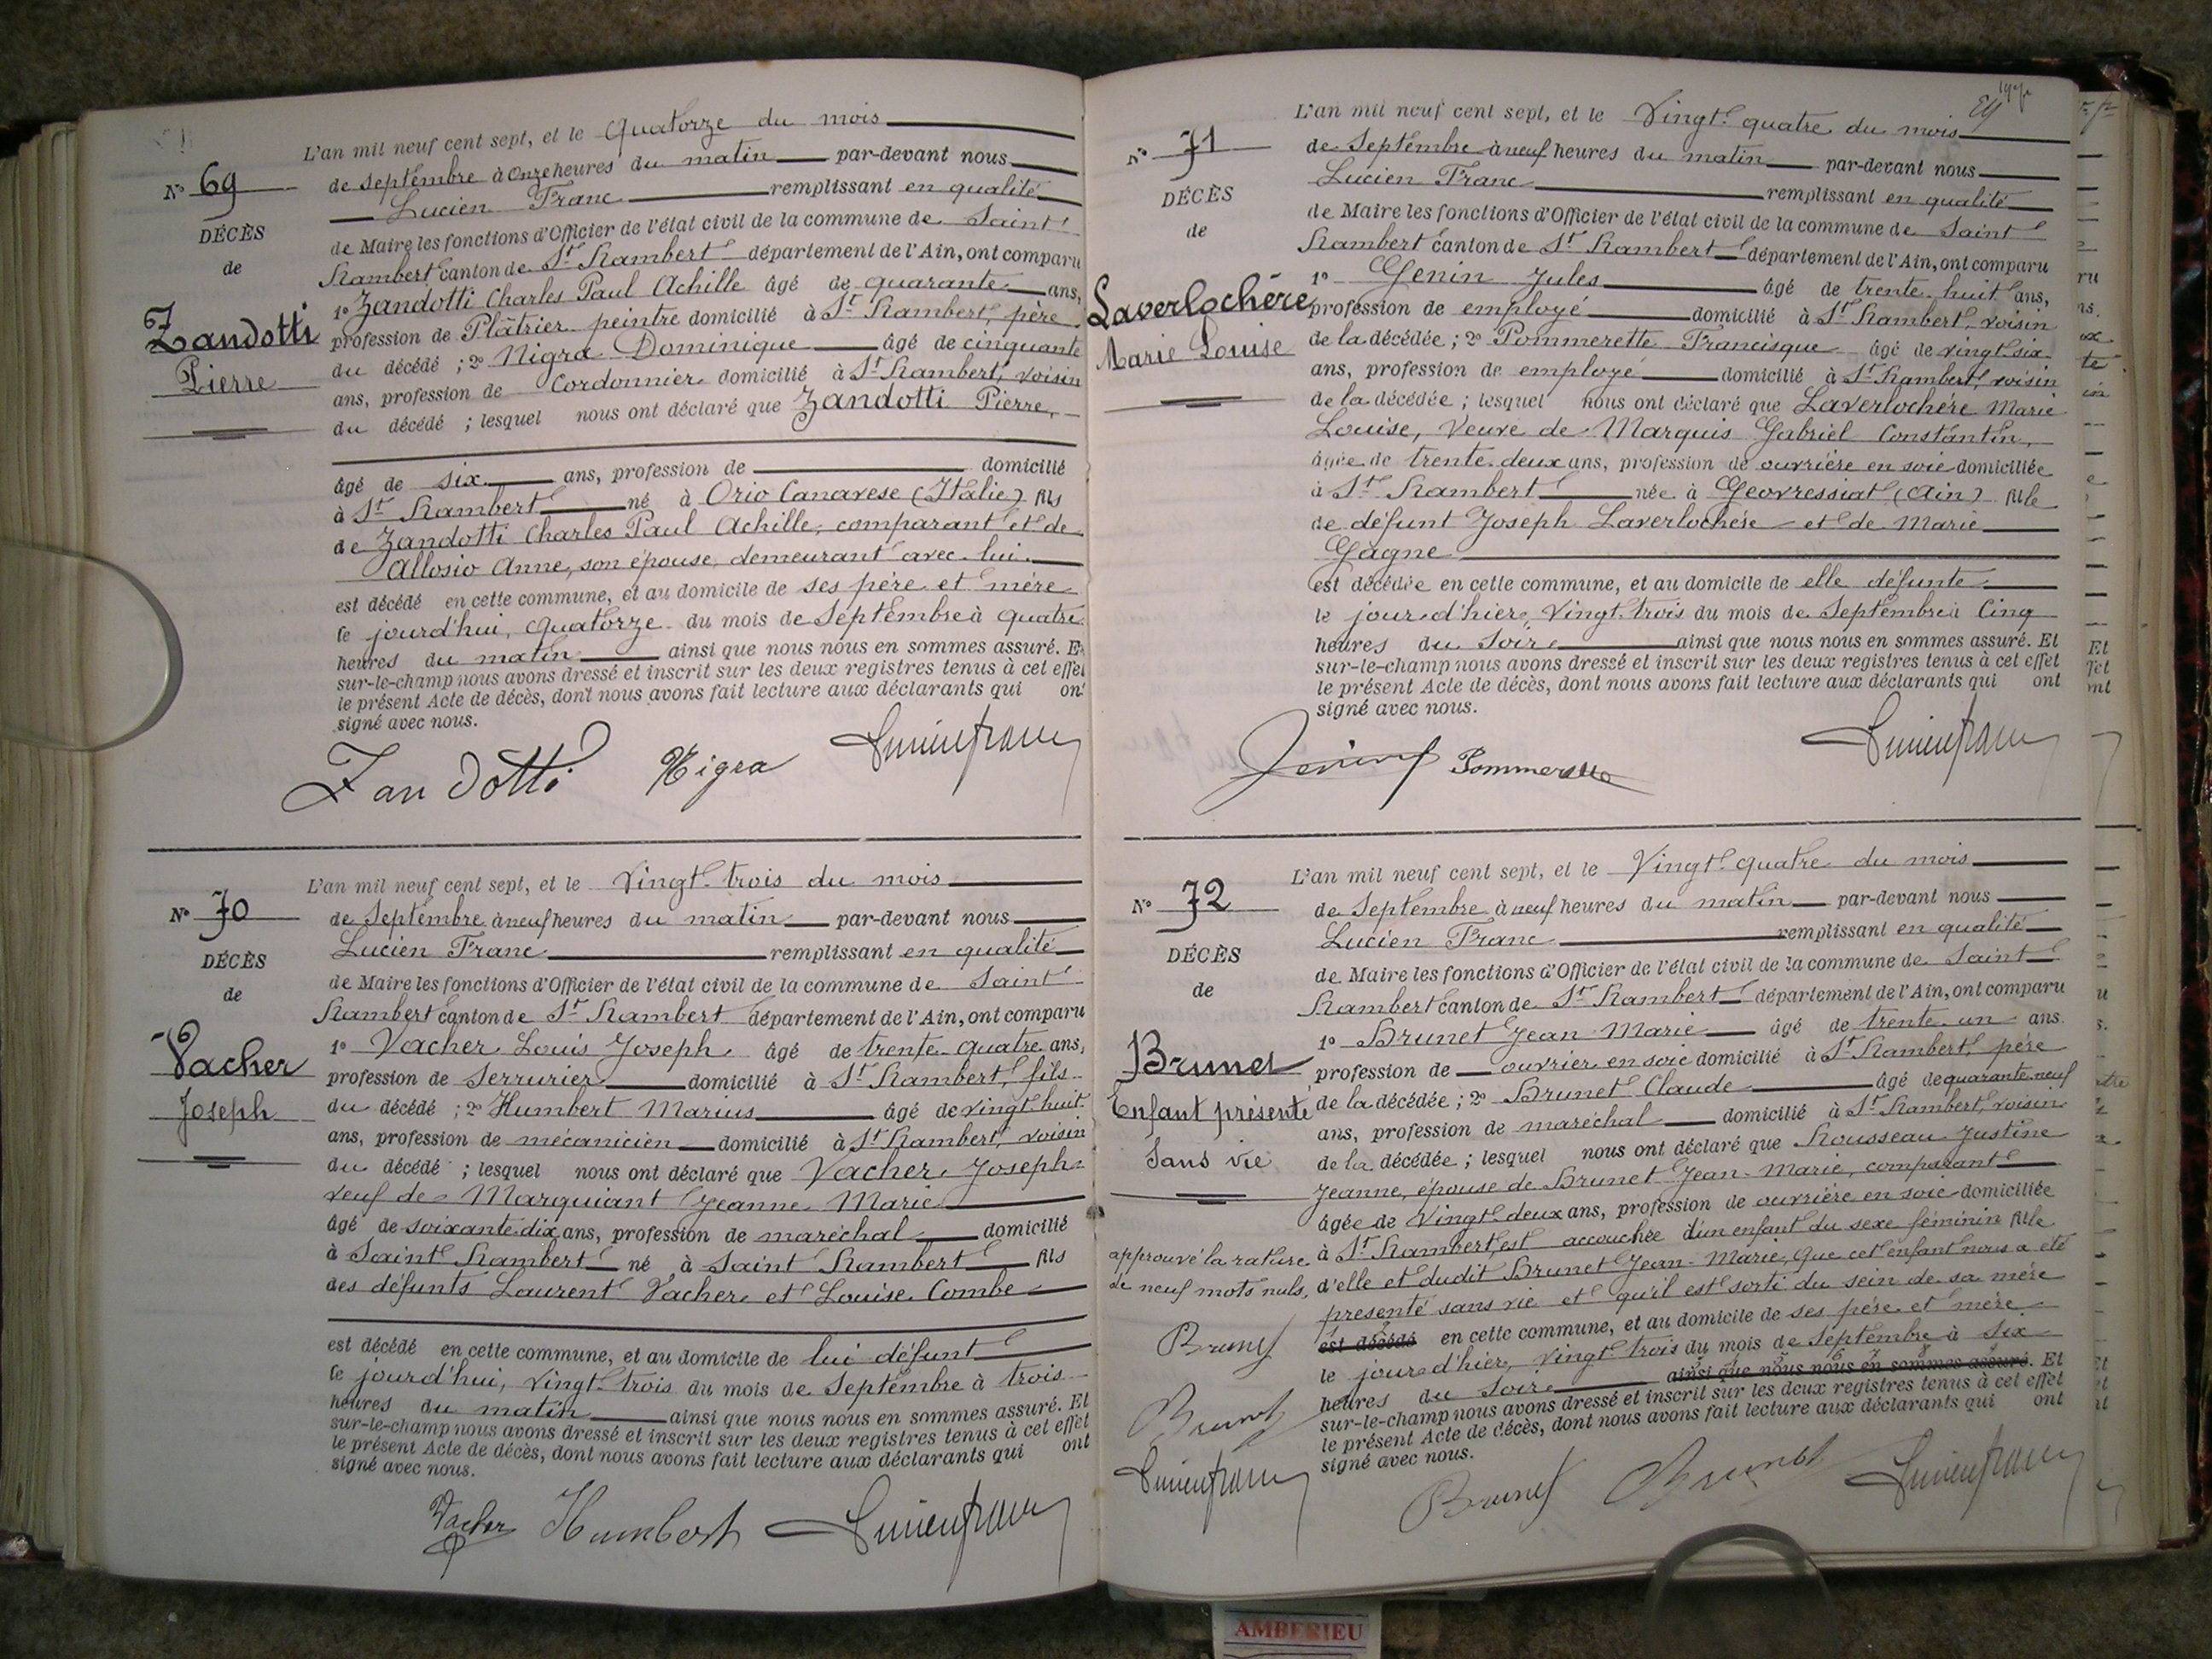 L'an mil neuf cent sept, et le Quatorze du mois
N° 69
de Septembre à Onze heures du matin par-devant nous
Lucien Franc remplissant en qualité
DÉCÈS
de Maire les fonctions d'Officier de l'état civil de la commune de Saint
de
Rambert canton de St Rambert département de l'Ain, ont comparu
1° Zandotti Charles Paul Achille âgé de quarante ans,
Zandotti
profession de Plâtrier peintre domicilié à St Rambert, père
Pierre
du décédé ; 2° Nigra Dominique âgé de cinquante
ans, profession de Cordonnier domicilié à St Rambert, voisin
du décédé ; lesquel nous ont déclaré que Zandotti Pierre,
âgé de six ans, profession de domicilié
à St Rambert né à Orio Canavese (Italie) fils
de Zandotti Charles Paul Achille, comparant et de
Allosio Anne, son épouse, demeurant avec lui
est décédé en cette commune, et au domicile de ses père et mère
le jourd'hui, quatorze du mois de Septembre à quatre
heures du matin ainsi que nous nous en sommes assuré. Et
sur-le-champ nous avons dressé et inscrit sur les deux registres tenus à cet effet
le présent Acte de décès, dont nous avons fait lecture aux déclarants qui ont
signé avec nous.
Zandotti Nigra Lucien Franc
L'an mil neuf cent sept, et le Vingt-trois du mois
N° 70
de Septembre à neuf heures du matin par-devant nous
Lucien Franc remplissant en qualité
DÉCÈS
de Maire les fonctions d'Officier de l'état civil de la commune de Saint
de
Rambert canton de St Rambert département de l'Ain, ont comparu
Vacher
1° Vacher Louis Joseph âgé de trente-quatre ans,
profession de Serrurier domicilié à St Rambert, fils
Joseph
du décédé ; 2° Humbert Marius âgé de vingt-huit
ans, profession de mécanicien domicilié à St Rambert, voisin
du décédé ; lesquel nous ont déclaré que Vacher Joseph
veuf de Marquiant Jeanne Marie
âgé de soixante-dix ans, profession de maréchal domicilié
à Saint Rambert né à Saint Rambert fils
des défunts Laurent Vacher et Louise Combe
est décédé en cette commune, et au domicile de lui défunt
le jourd'hui, vingt-trois du mois de Septembre à trois
heures du matin ainsi que nous nous en sommes assuré. Et
sur-le-champ nous avons dressé et inscrit sur les deux registres tenus à cet effet
le présent Acte de décès, dont nous avons fait lecture aux déclarants qui ont
signé avec nous.
Vacher Humbert Lucien Franc
L'an mil neuf cent sept, et le Vingt-quatre du mois
N° 71
de Septembre à neuf heures du matin par-devant nous
Lucien Franc remplissant en qualité
DÉCÈS
de Maire les fonctions d'Officier de l'état civil de la commune de Saint
de
Rambert canton de St Rambert département de l'Ain, ont comparu
1° Genin Jules âgé de trente-huit ans,
Laverlochère
profession de employé domicilié à St Rambert, voisin
Marie Louise
de la décédée ; 2° Pommerette Francisque âgé de vingt-six
ans, profession de employé domicilié à St Rambert, voisin
de la décédée ; lesquel nous ont déclaré que Laverlochère Marie
Louise, Veuve de Marquis Gabriel Constantin,
âgée de trente-deux ans, profession de ouvrière en soie domiciliée
à St Rambert née à Geovressiat (Ain) fille
de défunt Joseph Laverlochère et de Marie
Gagne
est décédée en cette commune, et au domicile de elle défunte
le jour d'hier, Vingt-trois du mois de Septembre à Cinq
heures du Soir ainsi que nous nous en sommes assuré. Et
sur-le-champ nous avons dressé et inscrit sur les deux registres tenus à cet effet
le présent Acte de décès, dont nous avons fait lecture aux déclarants qui ont
signé avec nous.
Genin Pommerette Lucien Franc
L'an mil neuf cent sept, et le Vingt-quatre du mois
N° 72
de Septembre à neuf heures du matin par-devant nous
Lucien Franc remplissant en qualité
DÉCÈS
de Maire les fonctions d'Officier de l'état civil de la commune de Saint
de
Rambert canton de St Rambert département de l'Ain, ont comparu
1° Brunet Jean Marie âgé de trente-un ans
Brunet
profession de ouvrier en soie domicilié à St Rambert, père
Enfant présenté
de la décédée ; 2° Brunet Claude âgé de quarante-neuf
ans, profession de maréchal domicilié à St Rambert, voisin
Sans vie
de la décédée ; lesquel nous ont déclaré que Rousseau Justine
Jeanne, épouse de Brunet Jean-Marie, comparant
âgée de Vingt-deux ans, profession de ouvrière en soie domiciliée
approuvé la rature
à St Rambert, est accouchée d'un enfant du sexe féminin fille
de neuf mots nuls,
d'elle et dudit Brunet Jean-Marie, Que cet enfant nous a été
présenté sans vie et qu'il est sorti du sein de sa mère
Brunet
est décédé en cette commune, et au domicile de ses père et mère
le jour d'hier, vingt-trois du mois de Septembre à six
heures du Soir ainsi que nous nous en sommes assuré. Et
Brunet
sur-le-champ nous avons dressé et inscrit sur les deux registres tenus à cet effet
le présent Acte de décès, dont nous avons fait lecture aux déclarants qui ont
Lucien Franc
signé avec nous.
Brunet Brunet Lucien Franc
AMBERIEU